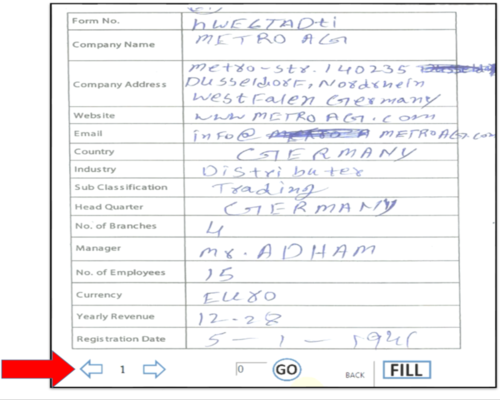 Form No. hWEGTADti
Company Name METRO AG
Company Address Metro-str. 1 40235
DUSSELdORF, Nordrhein
Westfalen Germany
Website www METRO AG.com
Email info@ METROAG.com
Country GERMANY
Industry Distributer
Sub Classification Trading
Head Quarter GERMANY
No. of Branches 4
Manager Mr. ADHAM
No. of Employees 15
Currency EURO
Yearly Revenue 12.28
Registration Date 5 - 1 -
1 0 GO BACK FILL